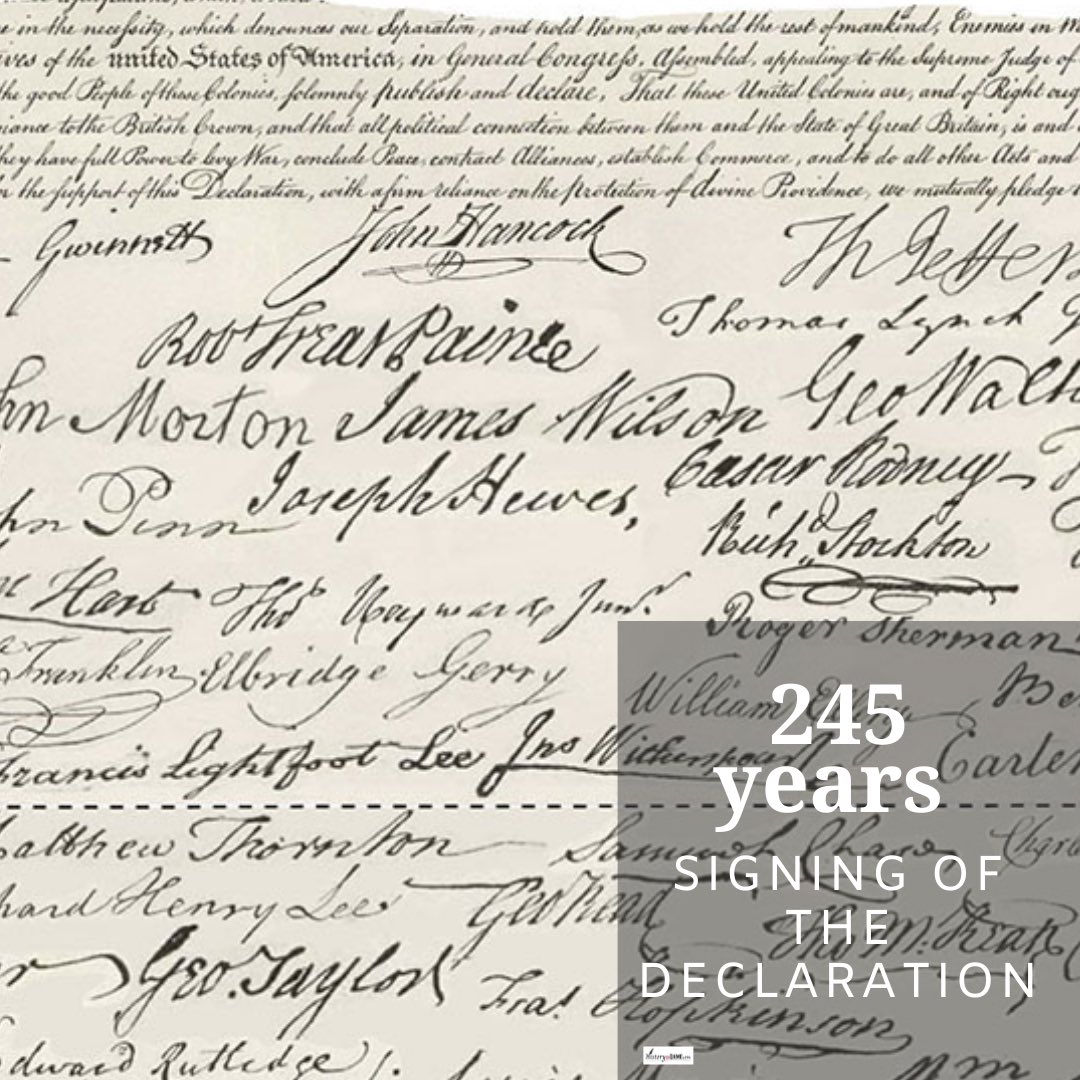 e in the necessity, which denounces our Separation, and hold them, as we hold the rest of mankind, Enemies in W
ives of the united States of America, in General Congress, Assembled, appealing to the Supreme Judge of
the good People of these Colonies, solemnly publish and declare, That these United Colonies are, and of Right oug
iance to the British Crown, and that all political connection between them and the State of Great Britain, is and
they have full Power to levy War, conclude Peace, contract Alliances, establish Commerce, and to do all other Acts and
n the support of this Declaration, with a firm reliance on the Protection of divine Providence, we mutually pledge
Gwinnett John Hancock Th Jeffers
Robt Treat Paine Thomas Lynch
hn Morton James Wilson Geo Walt
hn Penn Joseph Hewes, Caesar Rodney
Richd. Stockton
Hart Thos Heyward Junr.
Franklin Elbridge Gerry Roger Sherman
William Ellery
Francis Lightfoot Lee Jno Witherspoon Carter
245
years
atthew Thornton Samuel Chase
hard Henry Lee Geo Read
SIGNING OF
THE
DECLARATION
Tho M. Kean
Geo. Taylor
Fras. Hopkinson
dward Rutledge